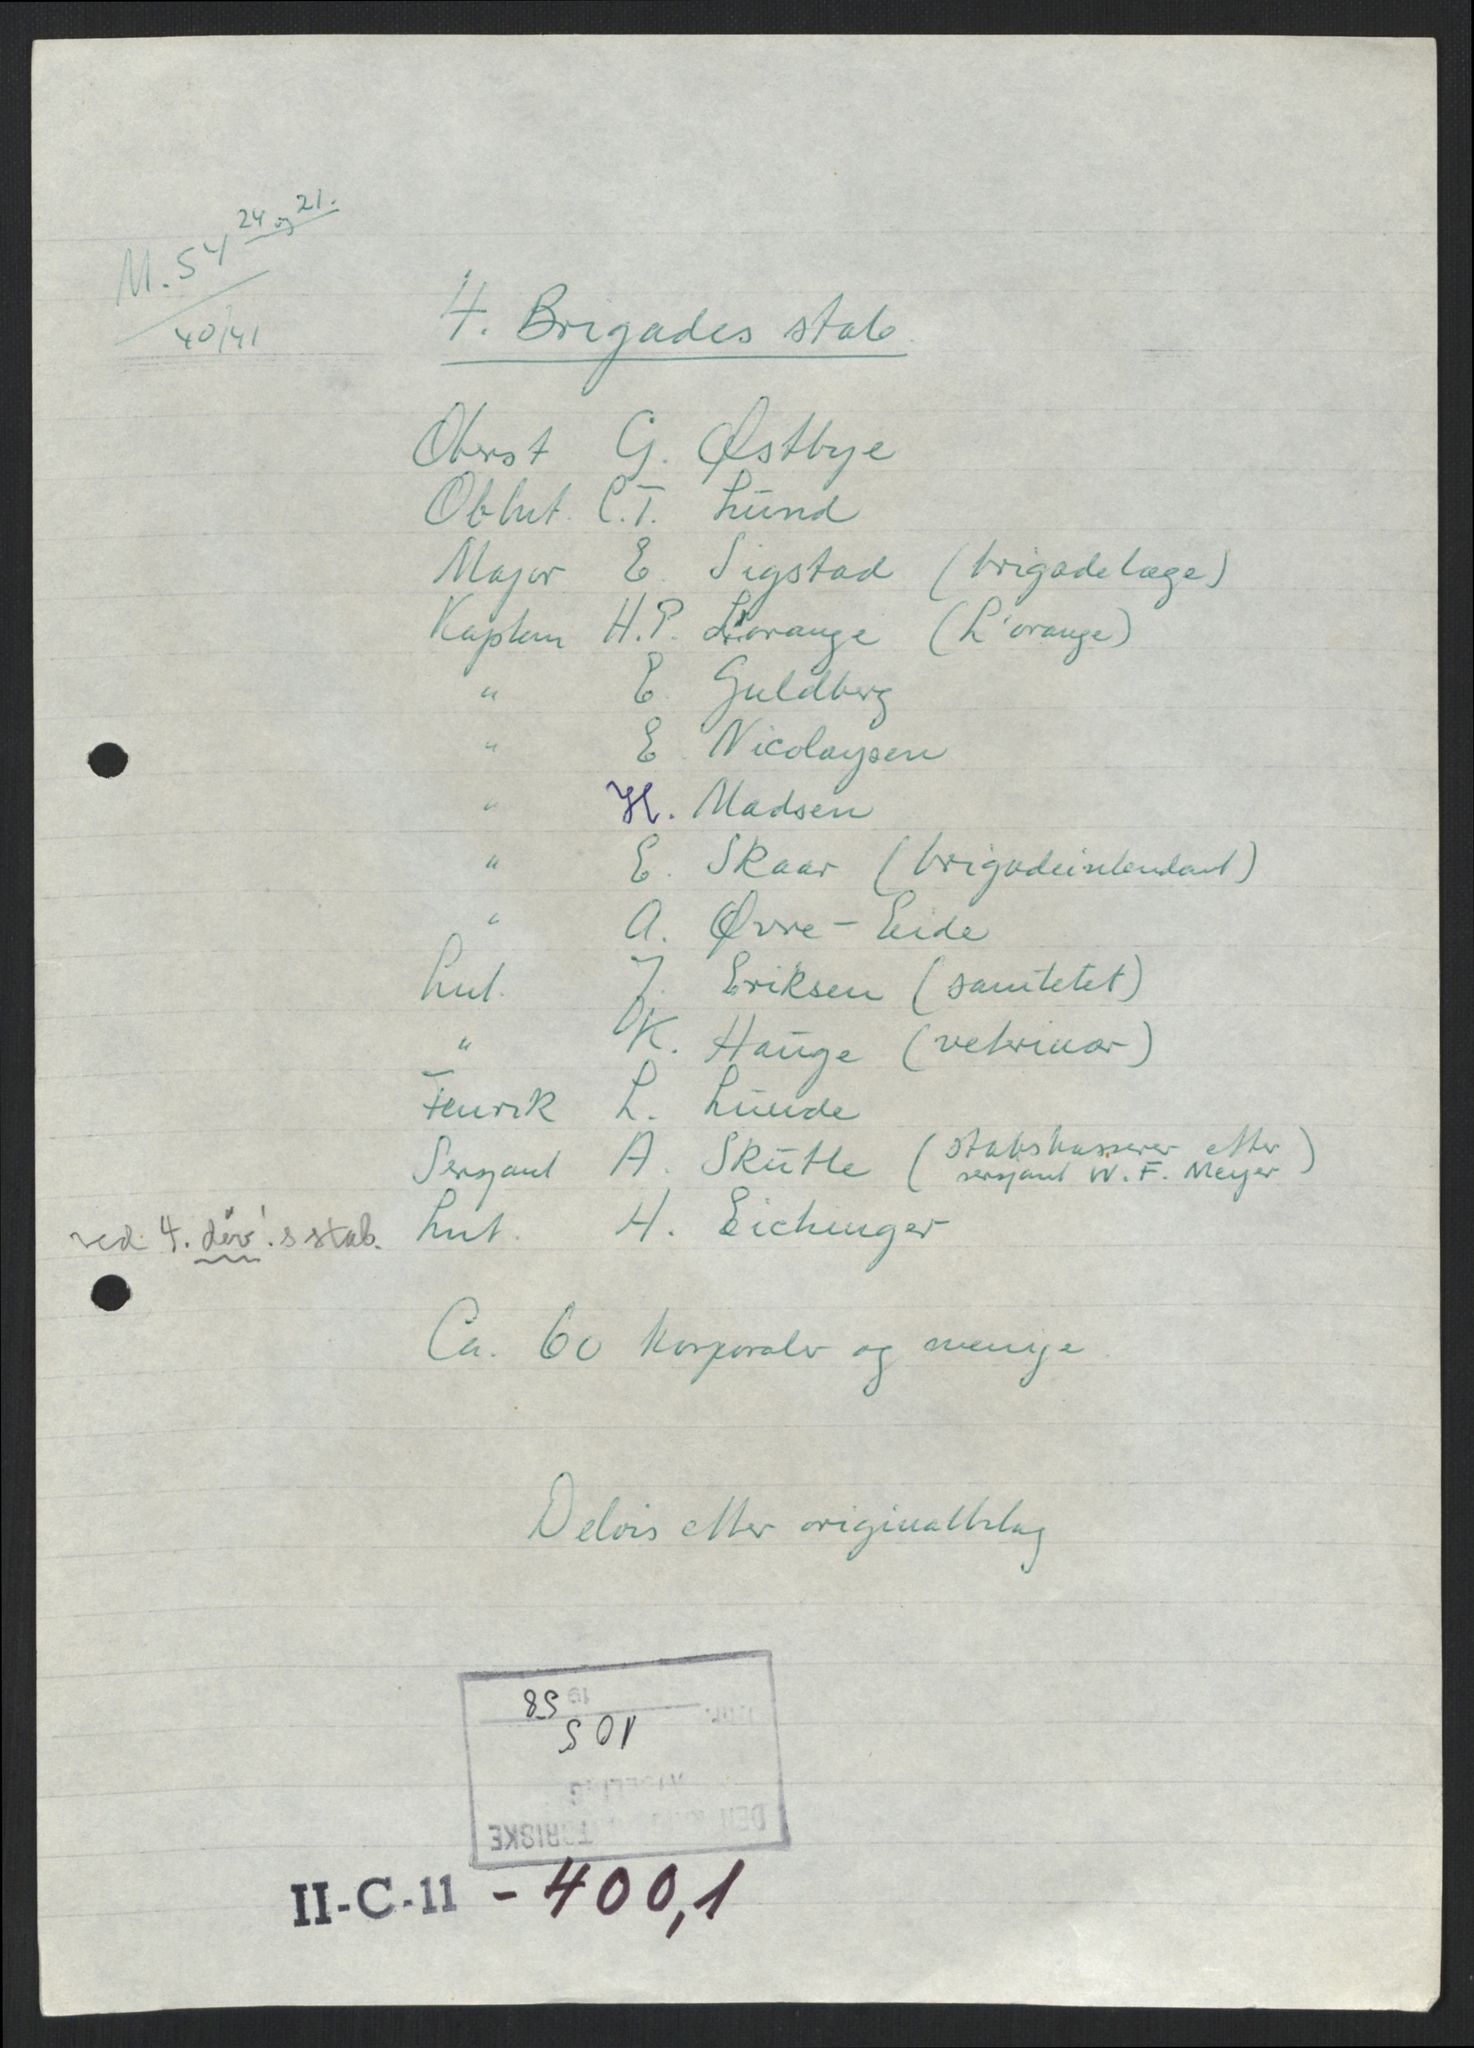 M. 54 24 og 21.
40/41
4. Brigades stab.
Oberst G. Østbye
Obltnt. C.T. Lund
Major E. Sigstad (brigadelæge)
Kaptein H.P. L'orange (L'orange)
" E. Guldberg
" E. Nicolaysen
" H. Madsen
" E. Skaar (brigadeintendant)
" A. Øvre-Eide
Lnt. J. Eriksen (sanitetet)
" K. Hauge (veterinær)
Fenrik L. Lunde
Sersjant A. Skutle (stabskasserer etter
sersjant W. F. Meyer)
ved 4. div.'s stab. Lnt. H. Eichinger
Ca. 60 korporaler og menige.
Delvis etter originalbilag
1958
105
DEN KRIGSHISTORISKE
AVDELING
II-C-11 - 400,1